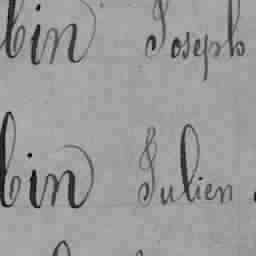 bin Joseph
bin Julien